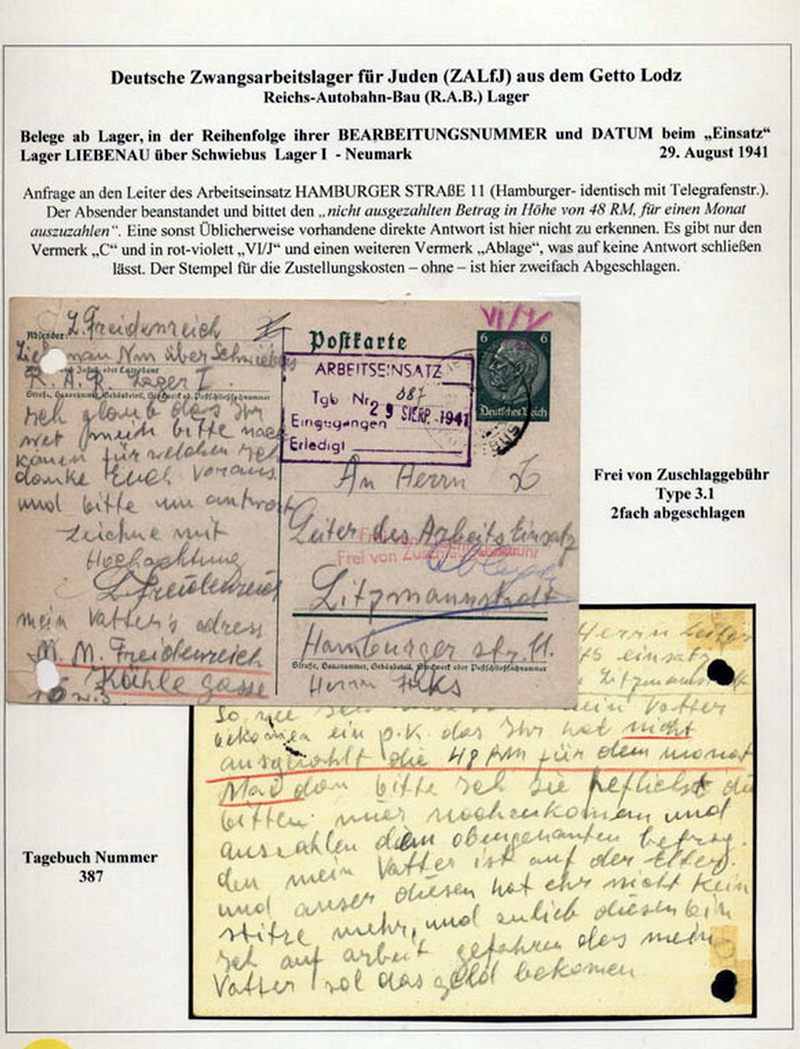 Deutsche Zwangsarbeitslager für Juden (ZALfJ) aus dem Getto Lodz
Reichs-Autobahn-Bau (R.A.B.) Lager
Belege ab Lager, in der Reihenfolge ihrer BEARBEITUNGSNUMMER und DATUM beim „Einsatz“
Lager LIEBENAU über Schwiebus Lager I - Neumark 29. August 1941
Anfrage an den Leiter des Arbeitseinsatz HAMBURGER STRAßE 11 (Hamburger- identisch mit Telegrafenstr.).
Der Absender beanstandet und bittet den „nicht ausgezahlten Betrag in Höhe von 48 RM, für einen Monat
auszuzahlen“. Eine sonst Üblicherweise vorhandene direkte Antwort ist hier nicht zu erkennen. Es gibt nur den
Vermerk „C“ und in rot-violett „VI/J“ und einen weiteren Vermerk „Ablage“, was auf keine Antwort schließen
lässt. Der Stempel für die Zustellungskosten – ohne – ist hier zweifach Abgeschlagen.
Absender: L. Freidenreich
über Schwiebus
R. A. B. Lager I
Straße, Hausnummer, Gebäudeteil, Stockwerk od. Postschließfachnummer
Ich glaub das Ihr
wet mich bitte nach
komen für welchen Ich
danke Euch Voraus
und bitte um antwort
zeichne mit
Hochachtung
L Freidenreich
mein Vatter's adress
M. M. Freidenreich
Kühle gasse
Postkarte
VI/J
6 6
Deutsches Reich
ARBEITSEINSATZ
Tgb Nr. 387
Eingegangen 29 SIERP. 1941
Erledigt
An Herrn
Leiter des Arbeits Einsatz
Frei von Zuschlaggebühr
Ablage
Litzmannstadt
Hamburger str. 11.
Straße, Hausnummer, Gebäudeteil, Stockwerk oder Postschließfachnummer
Herrn
Frei von Zuschlaggebühr
Type 3.1
2fach abgeschlagen
Herrn Leiter
einsatz
Litzmannstadt
mein Vatter
bekomen ein p.K. das Ihr hat nicht
ausgezahlt die 48 RM für dem monat
Mai dan bitte Ich sie heflichst
bitten mir nachzukomen und
auszahlen dem obengenanten betrag.
den mein Vatter ist auf der Elter.
und auser diesen hat ehr nicht kein
stitze mehr, und zulieb diesen bin
Ich auf arbeit gefahren das mein
Vatter sol das geld bekomen
Tagebuch Nummer
387